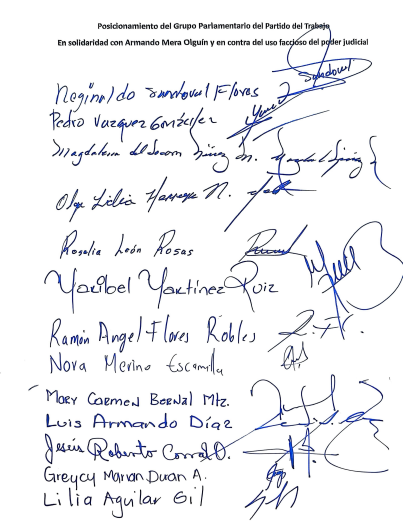 Posicionamiento del Grupo Parlamentario del Partido del Trabajo
En solidaridad con Armando Mera Olguín y en contra del uso faccioso del poder judicial
Sandoval
Reginaldo Sandoval Flores
Pedro Vazquez González
Magdalena del Socorro Núñez M.
Olga Lilia Herrera N.
Rosalia León Rosas
Maribel Martínez Ruiz
Ramón Angel Flores Robles R.F.R.
Nora Merino Escamilla
Mary Carmen Bernal Mtz.
Luis Armando Díaz
Jesús Roberto Corral O.
Greycy Marian Duran A.
Lilia Aguilar Gil